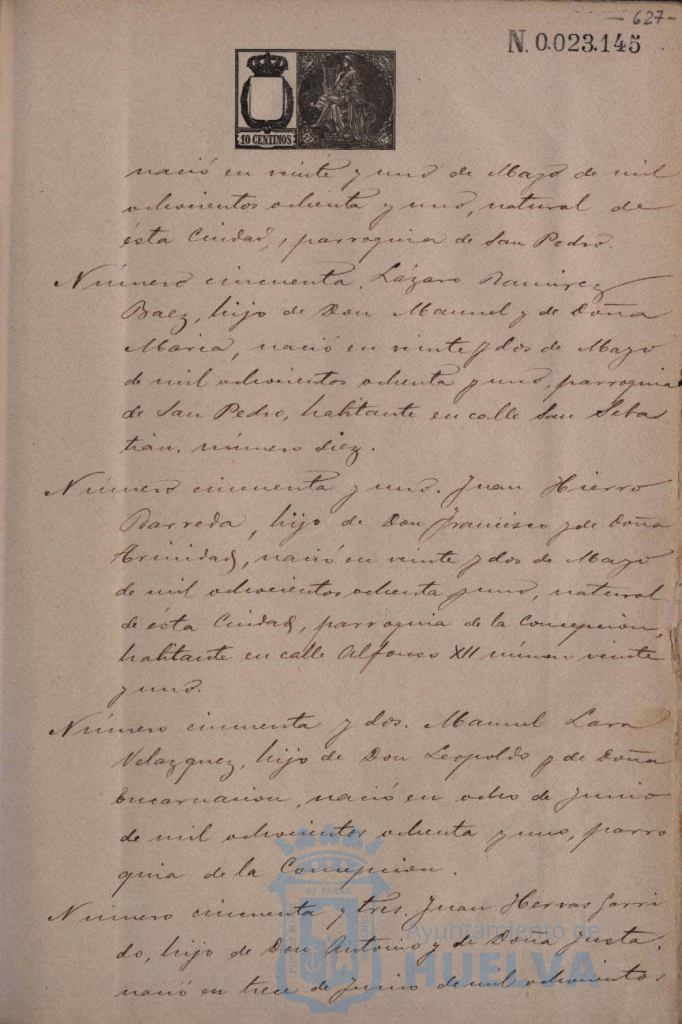 — 627 —
N. 0.023.145
10 CENTIMOS
nació en veinte y uno de Mayo de mil
ochocientos ochenta y uno, natural de
ésta Ciudad, parroquia de San Pedro.
Número cincuenta. Lázaro Ramirez
Baez, hijo de Don Manuel y de Doña
Maria, nació en veinte y dos de Mayo
de mil ochocientos ochenta y uno, parroquia
de San Pedro, habitante en calle San Sebas
tian, número diez.
Número cincuenta y uno. Juan Hierro
Barreda, hijo de Don Francisco y de Doña
Trinidad, nació en veinte y dos de Mayo
de mil ochocientos ochenta y uno, natural
de ésta Ciudad, parroquia de la Concepcion,
habitante en calle Alfonso XII número veinte
y uno.
Número cincuenta y dos. Manuel Lara
Velazquez, hijo de Don Leopoldo y de Doña
Encarnacion, nació en ocho de Junio
de mil ochocientos ochenta y uno, parro
quia de la Concepcion.
Número cincuenta y tres. Juan Hervas Garri
do, hijo de Don Antonio y de Doña Justa,
nació en trece de Junio de mil ochocientos
Ayuntamiento de
HUELVA